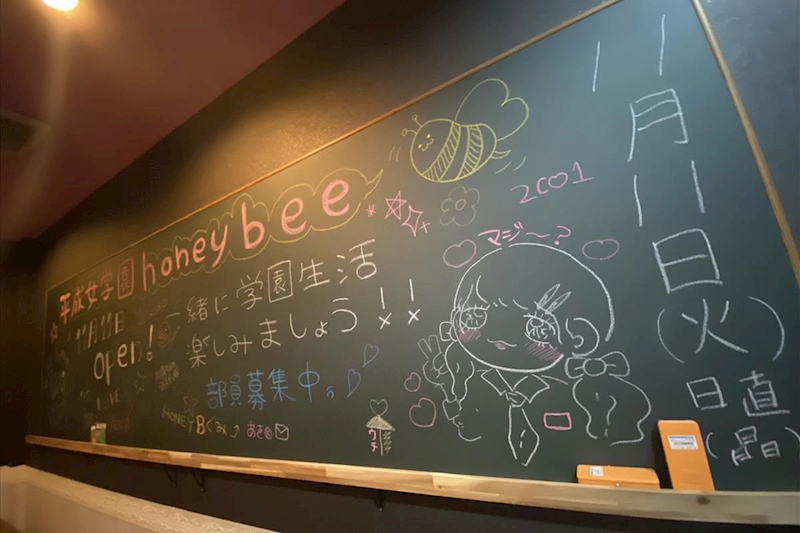 平成女学園 honey bee
11月11日
open!
一緒に学園生活
楽しみましょう!!
部員募集中
HONEY Bぐみ
あき
LOVE
2001
マジ〜?
11月11日(火)
日直(晶)